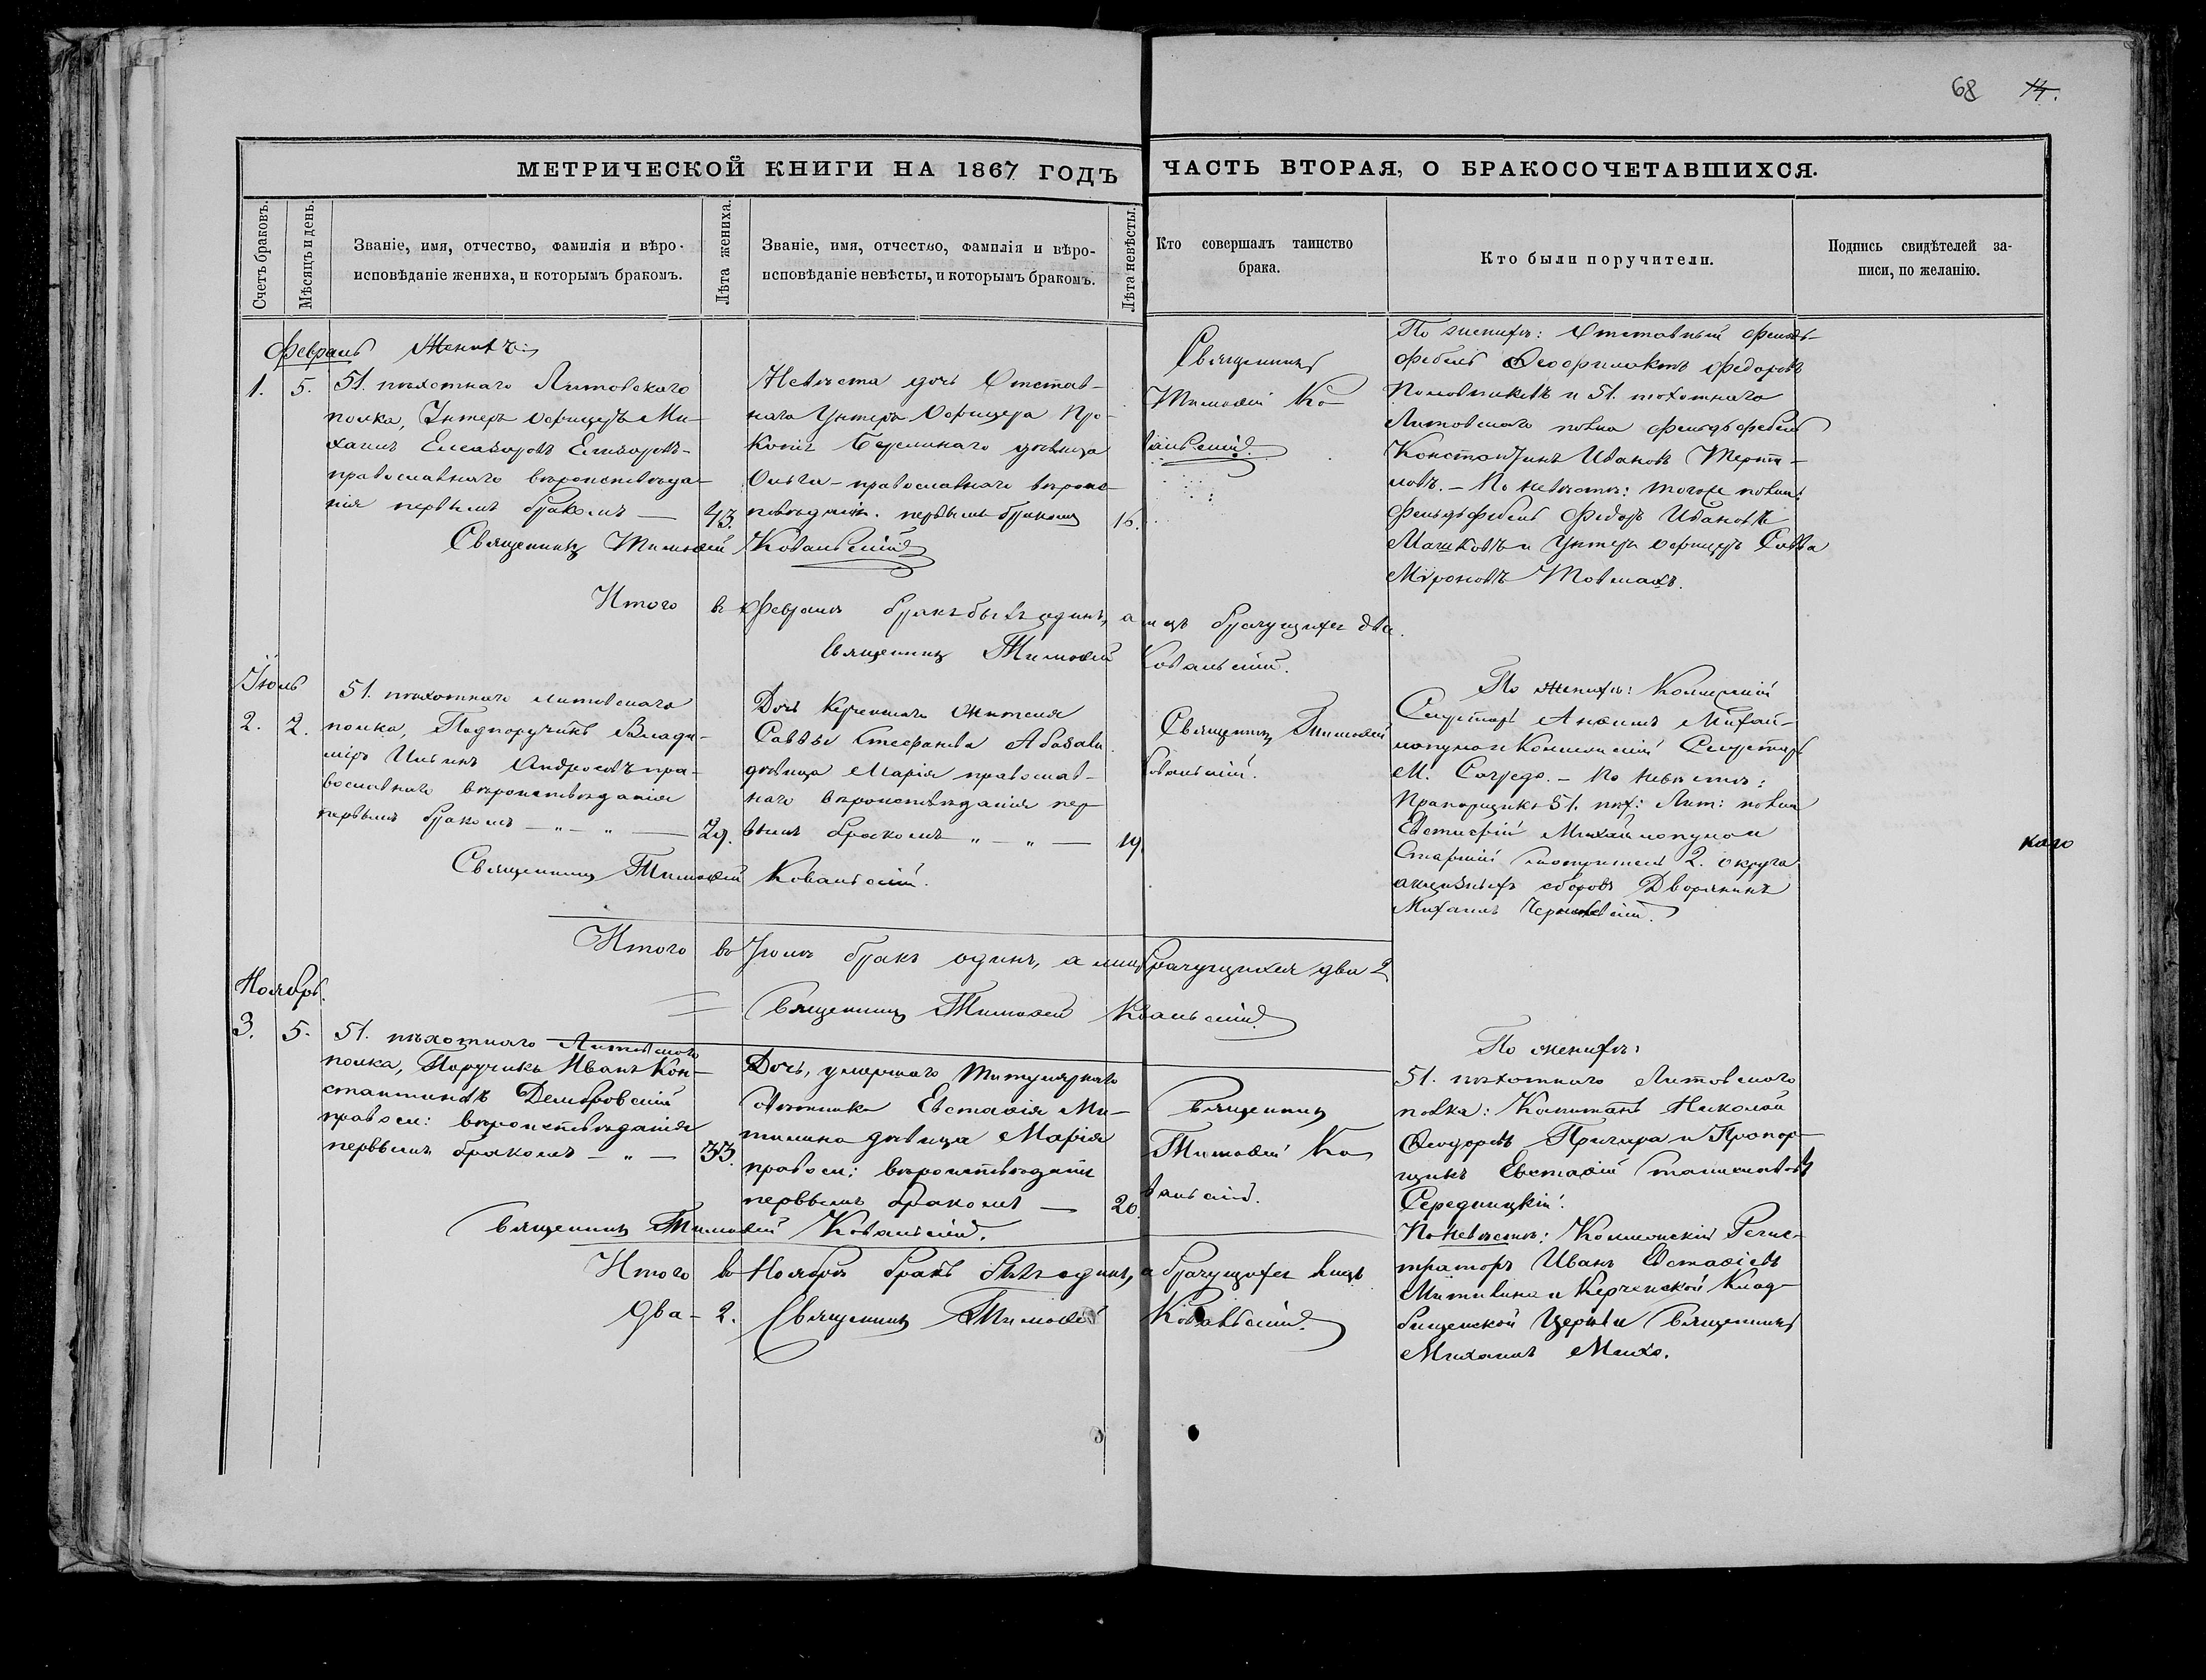 68 14.
МЕТРИЧЕСКОЙ КНИГИ НА 1867 ГОДЪ
ЧАСТЬ ВТОРАЯ, О БРАКОСОЧЕТАВШИХСЯ.
Счетъ браковъ.
Мѣсяцъ и день.
Званіе, имя, отчество, фамилія и вѣро-
исповѣданіе жениха, и которымъ бракомъ.
Лѣта жениха.
Званіе, имя, отчество, фамилія и вѣро-
исповѣданіе невѣсты, и которымъ бракомъ.
Лѣта невѣсты.
Кто совершалъ таинство
брака.
Кто были поручители.
Подпись свидѣтелей за-
писи, по желанію.
Февраль Женихъ:
1. 5. 51. пѣхотнаго Литовскаго
полка, Унтеръ Офицеръ Ми-
хаилъ Елеазаровъ
православнаго вѣроисповѣда-
нія первымъ бракомъ — 43.
Невѣста дочь Отстав-
наго Унтеръ Офицера Про-
копія дѣвица
Ольга - православнаго вѣроис-
повѣданія. первымъ бракомъ 16.
Священникъ
Тимофей Ко-
вальскій.
По женихѣ: Отставный Фельд-
фебель Феофилактъ Федоровъ
и 51. пѣхотнаго
Литовскаго полка фельдфебель
Константинъ Ивановъ
- По невѣстѣ: тогоже полка
Фельдфебель Федоръ Ивановъ
Машковъ и Унтеръ Офицеръ Савва
Мироновъ Товмачъ.
Священникъ Тимофей Ковальскій
Итого въ Февралѣ бракъ былъ одинъ, а лицъ брачущихся два.
Священникъ Тимофей Ковальскій.
Іюль
2. 2. 51. пѣхотнаго Литовскаго
полка, Подпоручикъ Влади-
міръ Ильинъ Андросовъ пра-
вославнаго вѣроисповѣданія
первымъ бракомъ — „ — „ — 29.
Дочь Керченскаго жителя
Саввы Стефанова
дѣвица Марія православ-
наго вѣроисповѣданія пер-
вымъ бракомъ „ — „ — 19.
Священникъ Тимофей
Ковальскій.
По женихѣ:
Секретарь Михай-
лопуло и Секретарь
М. - По невѣстѣ:
Прапорщикъ 51. пѣх: Лит: полка
Евстафій Михайлопуло и
Старшій смотритель 2. округа
акцизныхъ сборовъ Дворянинъ
Михаилъ
каго
Священникъ Тимофей Ковальскій.
Итого въ Іюлѣ бракъ одинъ, а лицъ брачущихся два 2
Священникъ Тимофей Ковальскій.
Ноябрь.
3. 5. 51. пѣхотнаго Литовскаго
полка, Поручикъ Иванъ Кон-
стантиновъ
правосл: вѣроисповѣданія
первымъ бракомъ — „ — 33.
Дочь, умершаго титулярнаго
совѣтника Евстафія Ми-
тилино дѣвица Марія
правосл: вѣроисповѣданія
первымъ бракомъ — 20.
Священникъ
Тимофей Ко-
вальскій.
По женихѣ:
51. пѣхотнаго Литовскаго
полка: Капитанъ Николай
Феодоровъ и Прапор-
щикъ Евстафій Станиславовъ
Середницкій.
По невѣстѣ: Коллежскій Регис-
траторъ Иванъ Евстафіевъ
Митилино и Керченской Клад-
бищенской Церкви Священникъ
Михаилъ
Священникъ Тимофей Ковальскій.
Итого въ Ноябрѣ бракъ былъ одинъ, а брачущихся лицъ
два - 2. Священникъ Тимофей Ковальскій.